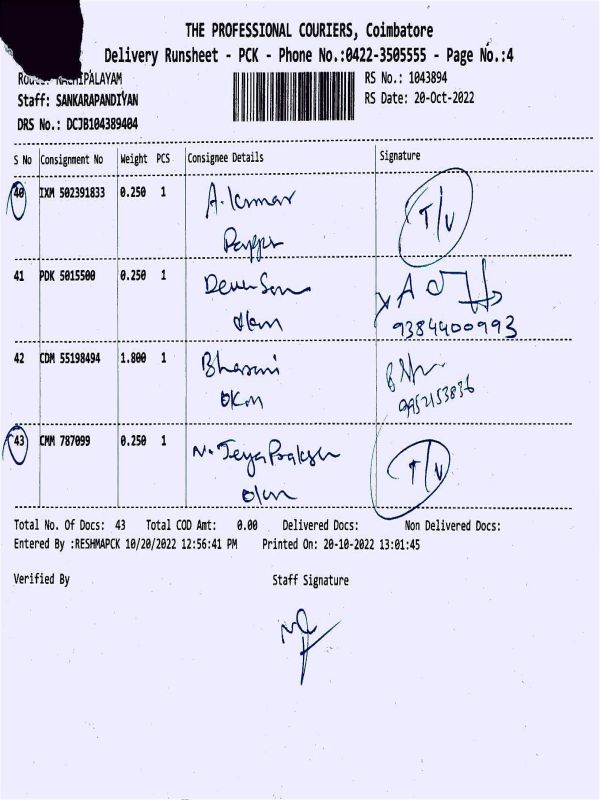 THE PROFESSIONAL COURIERS, Coimbatore
Delivery Runsheet - PCK - Phone No.:0422-3505555 - Page No.:4
NACHIPALAYAM RS No.: 1043894
Staff: SANKARAPANDIYAN RS Date: 20-Oct-2022
DRS No.: DCJB104389404
S No Consignment No Weight PCS Consignee Details Signature
40 IXM 502391833 0.250 1 A. Kumar T/V
41 PDK 5015500 0.250 1
9384400993
42 CDM 55198494 1.800 1 Bhavani
9952153836
43 CMM 787099 0.250 1 N. Jeya Prakash T/V
Total No. Of Docs: 43 Total COD Amt: 0.00 Delivered Docs: Non Delivered Docs:
Entered By :RESHMAPCK 10/20/2022 12:56:41 PM Printed On: 20-10-2022 13:01:45
Verified By Staff Signature